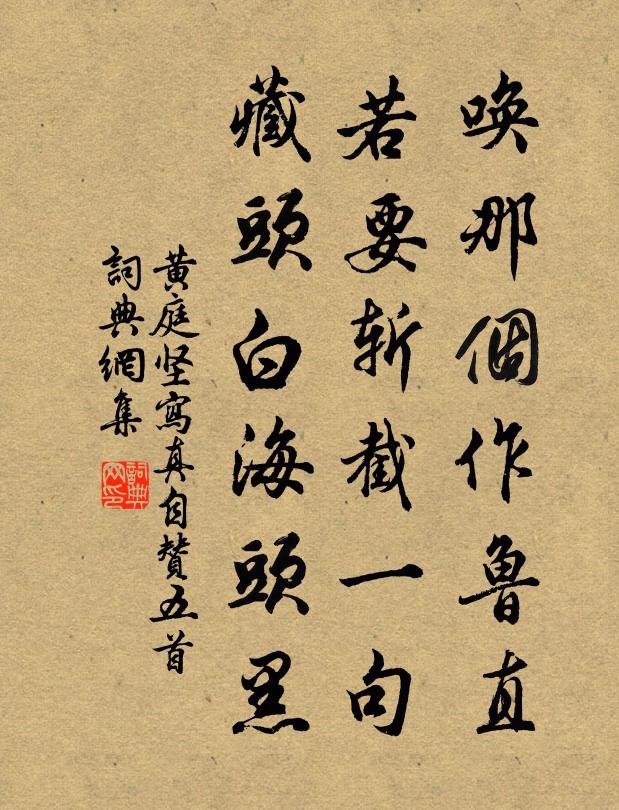 唤那個作魯直
若要斬截一句
藏頭白海頭黑
黄庭坚寫真自贊五首
詞典網集
詞典網印